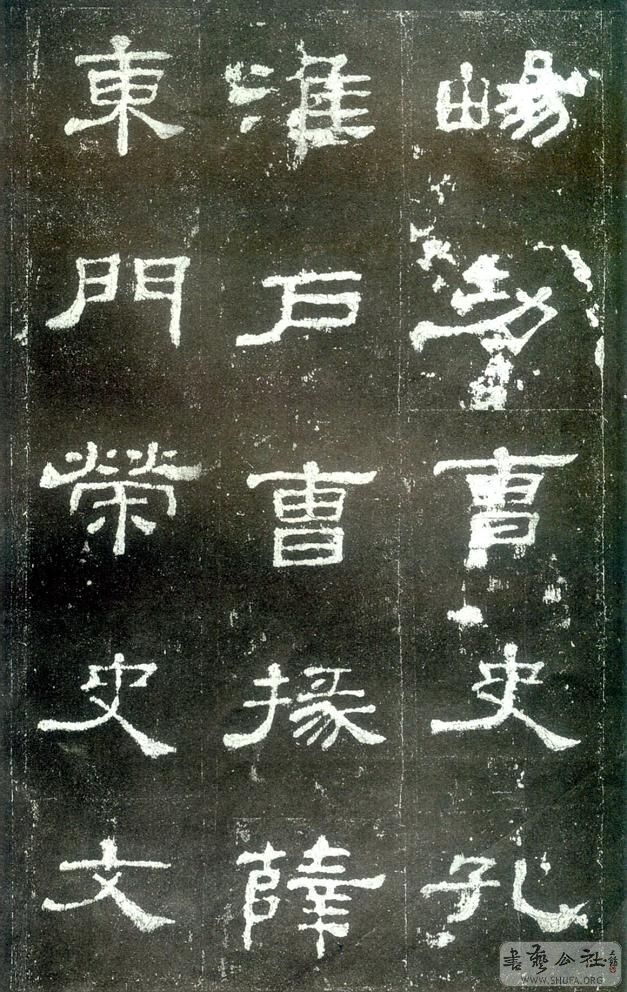 暢功曹史孔
淮戶曹掾薛
東門榮史文
書藝公社
WWW.SHUFA.ORG